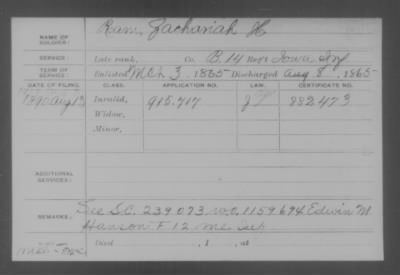 NAME OF SOLDIER: Ram, Zachariah H.
SERVICE: Late rank, Co. B. 14 Reg't Iowa Inf
TERM OF SERVICE: Enlisted Mch 3, 1865 Discharged Aug 8, 1865
DATE OF FILING. CLASS. APPLICATION NO. LAW. CERTIFICATE NO.
1890 Aug Invalid, 915.717 882473
Widow,
Minor,
ADDITIONAL SERVICES:
REMARKS: See S.C. 239073 W.O. 1159694 Edwin M
Hanson F 12 Me Inf
Died , 1 , at